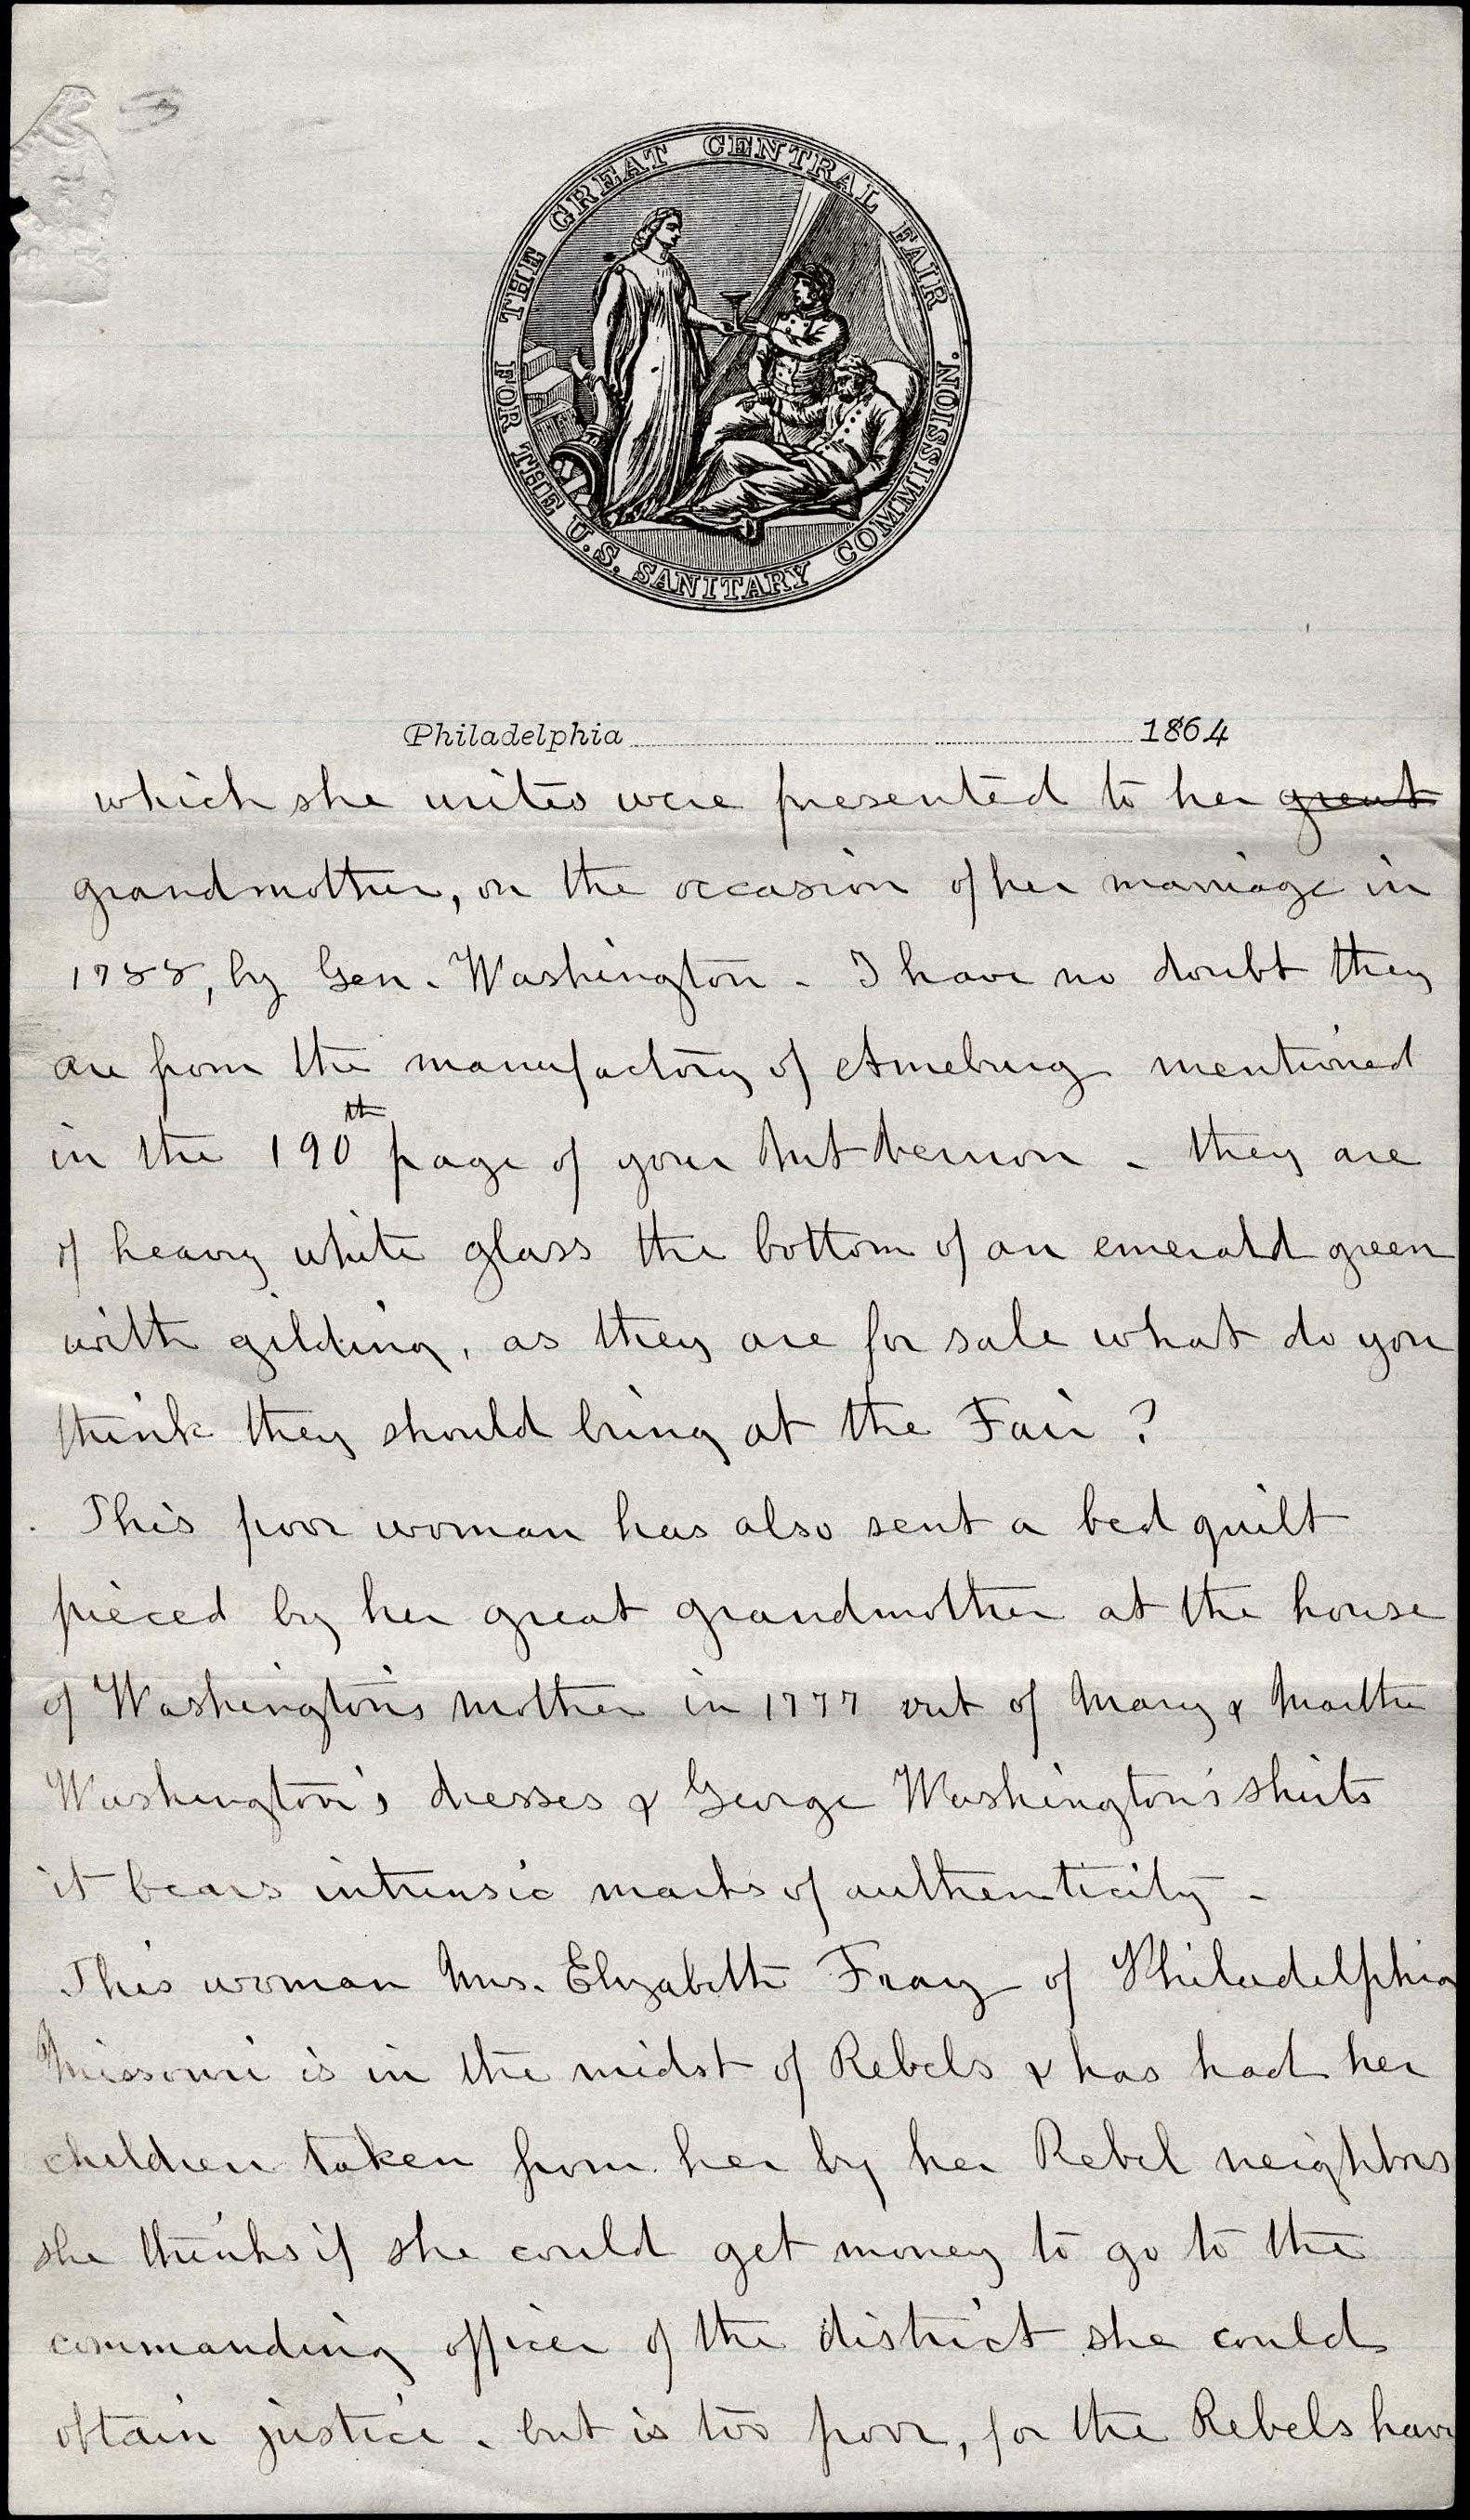 THE GREAT CENTRAL FAIR
FOR THE U.S. SANITARY COMMISSION.
Philadelphia 1864
which she writes were presented to her great
grandmother, on the occasion of her marriage in
1788, by Gen. Washington. I have no doubt they
are from the manufactory of Amelung mentioned
in the 190th page of your Mt Vernon - they are
of heavy white glass the bottom of an emerald green
with gilding, as they are for sale what do you
think they should bring at the Fair?
This poor woman has also sent a bed quilt
pieced by her great grandmother at the house
of Washington's mother in 1777 out of Mary & Martha
Washington's dresses & George Washington's shirts
it bears intrinsic marks of authenticity -
This woman Mrs. Elizabeth Fray of Philadelphia
Missouri is in the midst of Rebels & has had her
children taken from her by her Rebel neighbors
she thinks if she could get money to go to the
commanding officer of the district she could
obtain justice. but is too poor, for the Rebels have